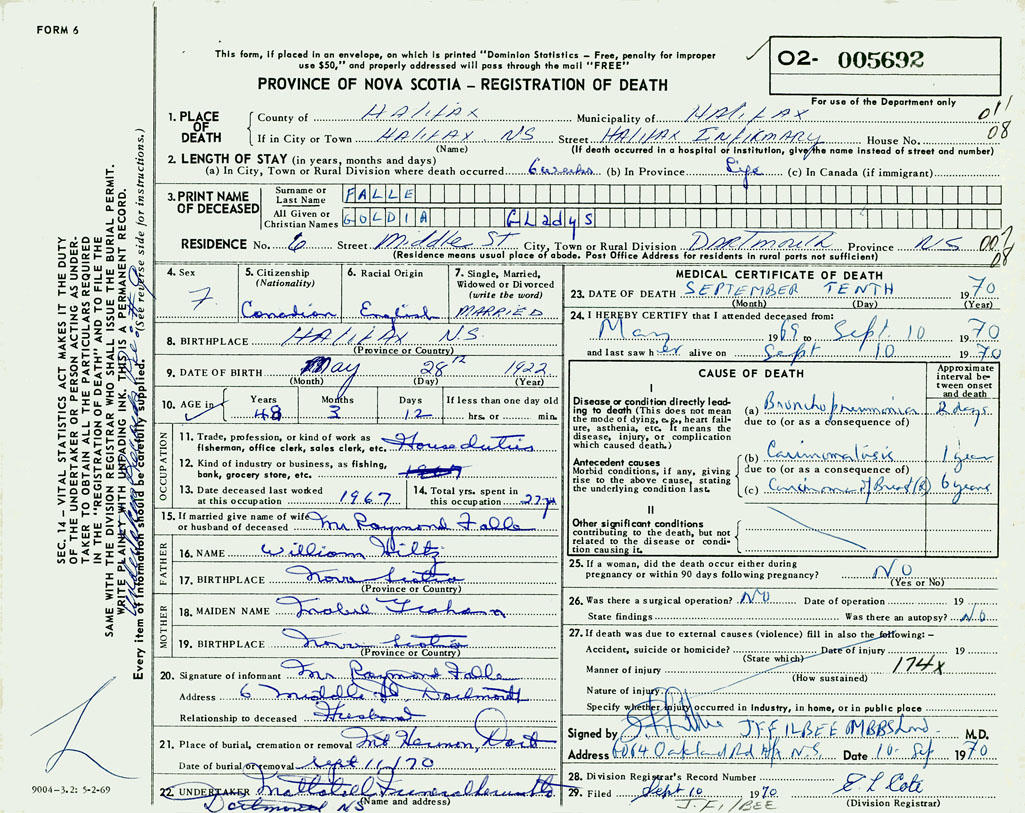 FORM 6
This form, if placed in an envelope, on which is printed "Dominion Statistics – Free, penalty for improper
use $50," and properly addressed will pass through the mail "FREE"
O2- 005692
PROVINCE OF NOVA SCOTIA – REGISTRATION OF DEATH
For use of the Department only
1. PLACE OF DEATH County of HALIFAX Municipality of HALIFAX 011
If in City or Town HALIFAX NS Street HALIFAX INFIRMARY House No. 08
(Name) (If death occurred in a hospital or institution, give the name instead of street and number)
2. LENGTH OF STAY (in years, months and days)
(a) In City, Town or Rural Division where death occurred 6 weeks (b) In Province Life (c) In Canada (if immigrant)
3. PRINT NAME OF DECEASED Surname or Last Name FALLE
All Given or Christian Names GOLDIA GLadys
RESIDENCE No. 6 Street Middle St City, Town or Rural Division DARTMOUTH Province NS
(Residence means usual place of abode. Post Office Address for residents in rural parts not sufficient) 08
4. Sex F.
5. Citizenship (Nationality) Canadian
6. Racial Origin English
7. Single, Married, Widowed or Divorced (write the word) MARRIED
8. BIRTHPLACE HALIFAX N.S.
(Province or Country)
9. DATE OF BIRTH May 28th 1922
(Month) (Day) (Year)
10. AGE in Years 48 Months 3 Days 12 If less than one day old hrs. or min.
OCCUPATION
11. Trade, profession, or kind of work as fisherman, office clerk, sales clerk, etc. House duties
12. Kind of industry or business, as fishing, bank, grocery store, etc.
13. Date deceased last worked at this occupation 1967
14. Total yrs. spent in this occupation 27 yr
15. If married give name of wife or husband of deceased Mr Raymond Falle
FATHER
16. NAME William Hiltz
17. BIRTHPLACE Nova Scotia
(Province or Country)
MOTHER
18. MAIDEN NAME Mabel Graham
19. BIRTHPLACE Nova Scotia
(Province or Country)
20. Signature of informant Mr Raymond Falle
Address 6 Middle St. Dartmouth
Relationship to deceased Husband
21. Place of burial, cremation or removal Mt Hermon, Dart
Date of burial or removal Sept 11/70
22. UNDERTAKER
(Name and address)
Dartmouth NS
MEDICAL CERTIFICATE OF DEATH
23. DATE OF DEATH SEPTEMBER TENTH 1970
(Month) (Day) (Year)
24. I HEREBY CERTIFY that I attended deceased from:
May 1969 to Sept. 10 1970
and last saw h er alive on Sept 10 1970
CAUSE OF DEATH
Approximate interval between onset and death
I
Disease or condition directly leading to death (This does not mean the mode of dying, e.g., heart failure, asthenia, etc. It means the disease, injury, or complication which caused death.)
(a) Bronchopneumonia 2 days
due to (or as a consequence of)
Antecedent causes
Morbid conditions, if any, giving rise to the above cause, stating the underlying condition last.
(b) Carcinomatosis 1 year
due to (or as a consequence of)
(c) Carcinoma of Breast (R) 6 years
II
Other significant conditions
contributing to the death, but not related to the disease or condition causing it.
25. If a woman, did the death occur either during pregnancy or within 90 days following pregnancy? NO
(Yes or No)
26. Was there a surgical operation? NO Date of operation 19
State findings Was there an autopsy? NO
27. If death was due to external causes (violence) fill in also the following: –
Accident, suicide or homicide? Date of injury 19
(State which)
Manner of injury 174x
(How sustained)
Nature of injury
Specify whether injury occurred in industry, in home, or in public place
Signed by J F FILBEE MBBS Lond M.D.
Address 6064 Oakland Rd Hfx N.S. Date 10 Sep 1970
28. Division Registrar's Record Number
29. Filed Sept 10 1970
(Division Registrar)
J. FilBEE
SEC. 14 – VITAL STATISTICS ACT MAKES IT THE DUTY
OF THE UNDERTAKER OR PERSON ACTING AS UNDER-
TAKER TO OBTAIN ALL THE PARTICULARS REQUIRED
IN THE "REGISTRATION OF DEATH" AND TO FILE THE
SAME WITH THE DIVISION REGISTRAR WHO SHALL ISSUE THE BURIAL PERMIT.
WRITE PLAINLY WITH UNFADING INK. THIS IS A PERMANENT RECORD.
Every item of information should be carefully supplied. (See reverse side for instructions.)
9004-3.2: 5-2-69